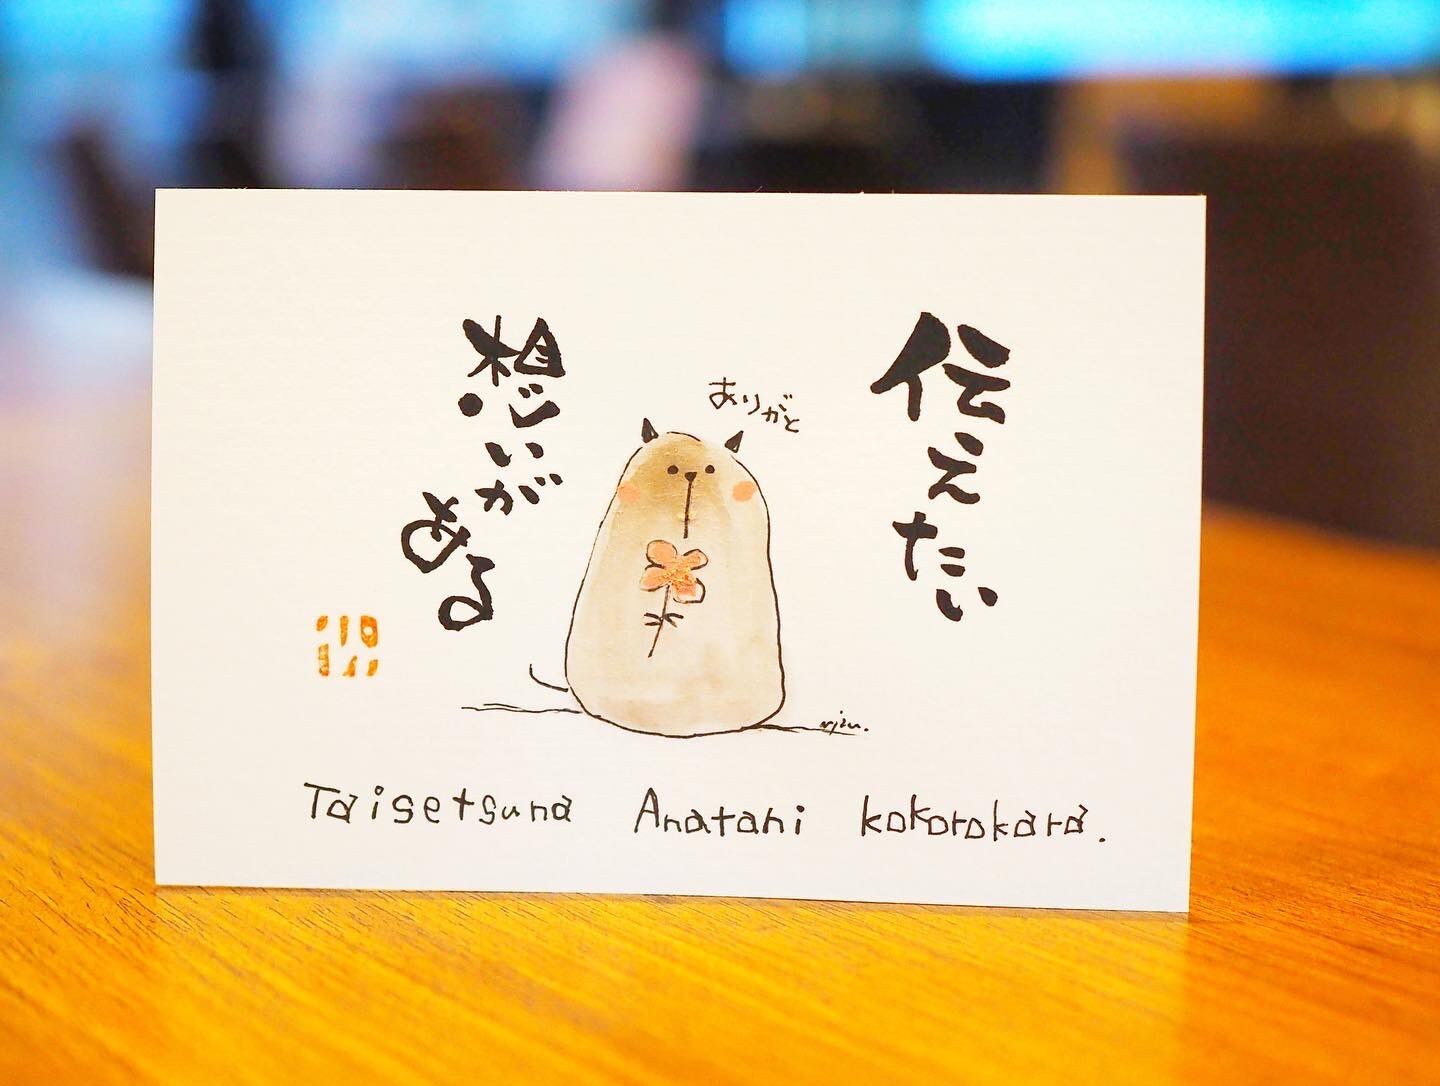 伝えたい
ありがと
想いがある
Taisetsuna Anatani kokorokara.